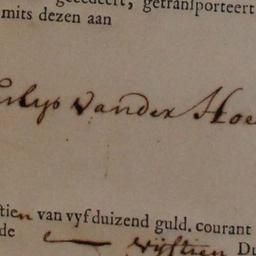 gecedeert, getransporteert
mits dezen aan
vander Hoe
tien van vyf duizend guld. courant
de vijftien Du